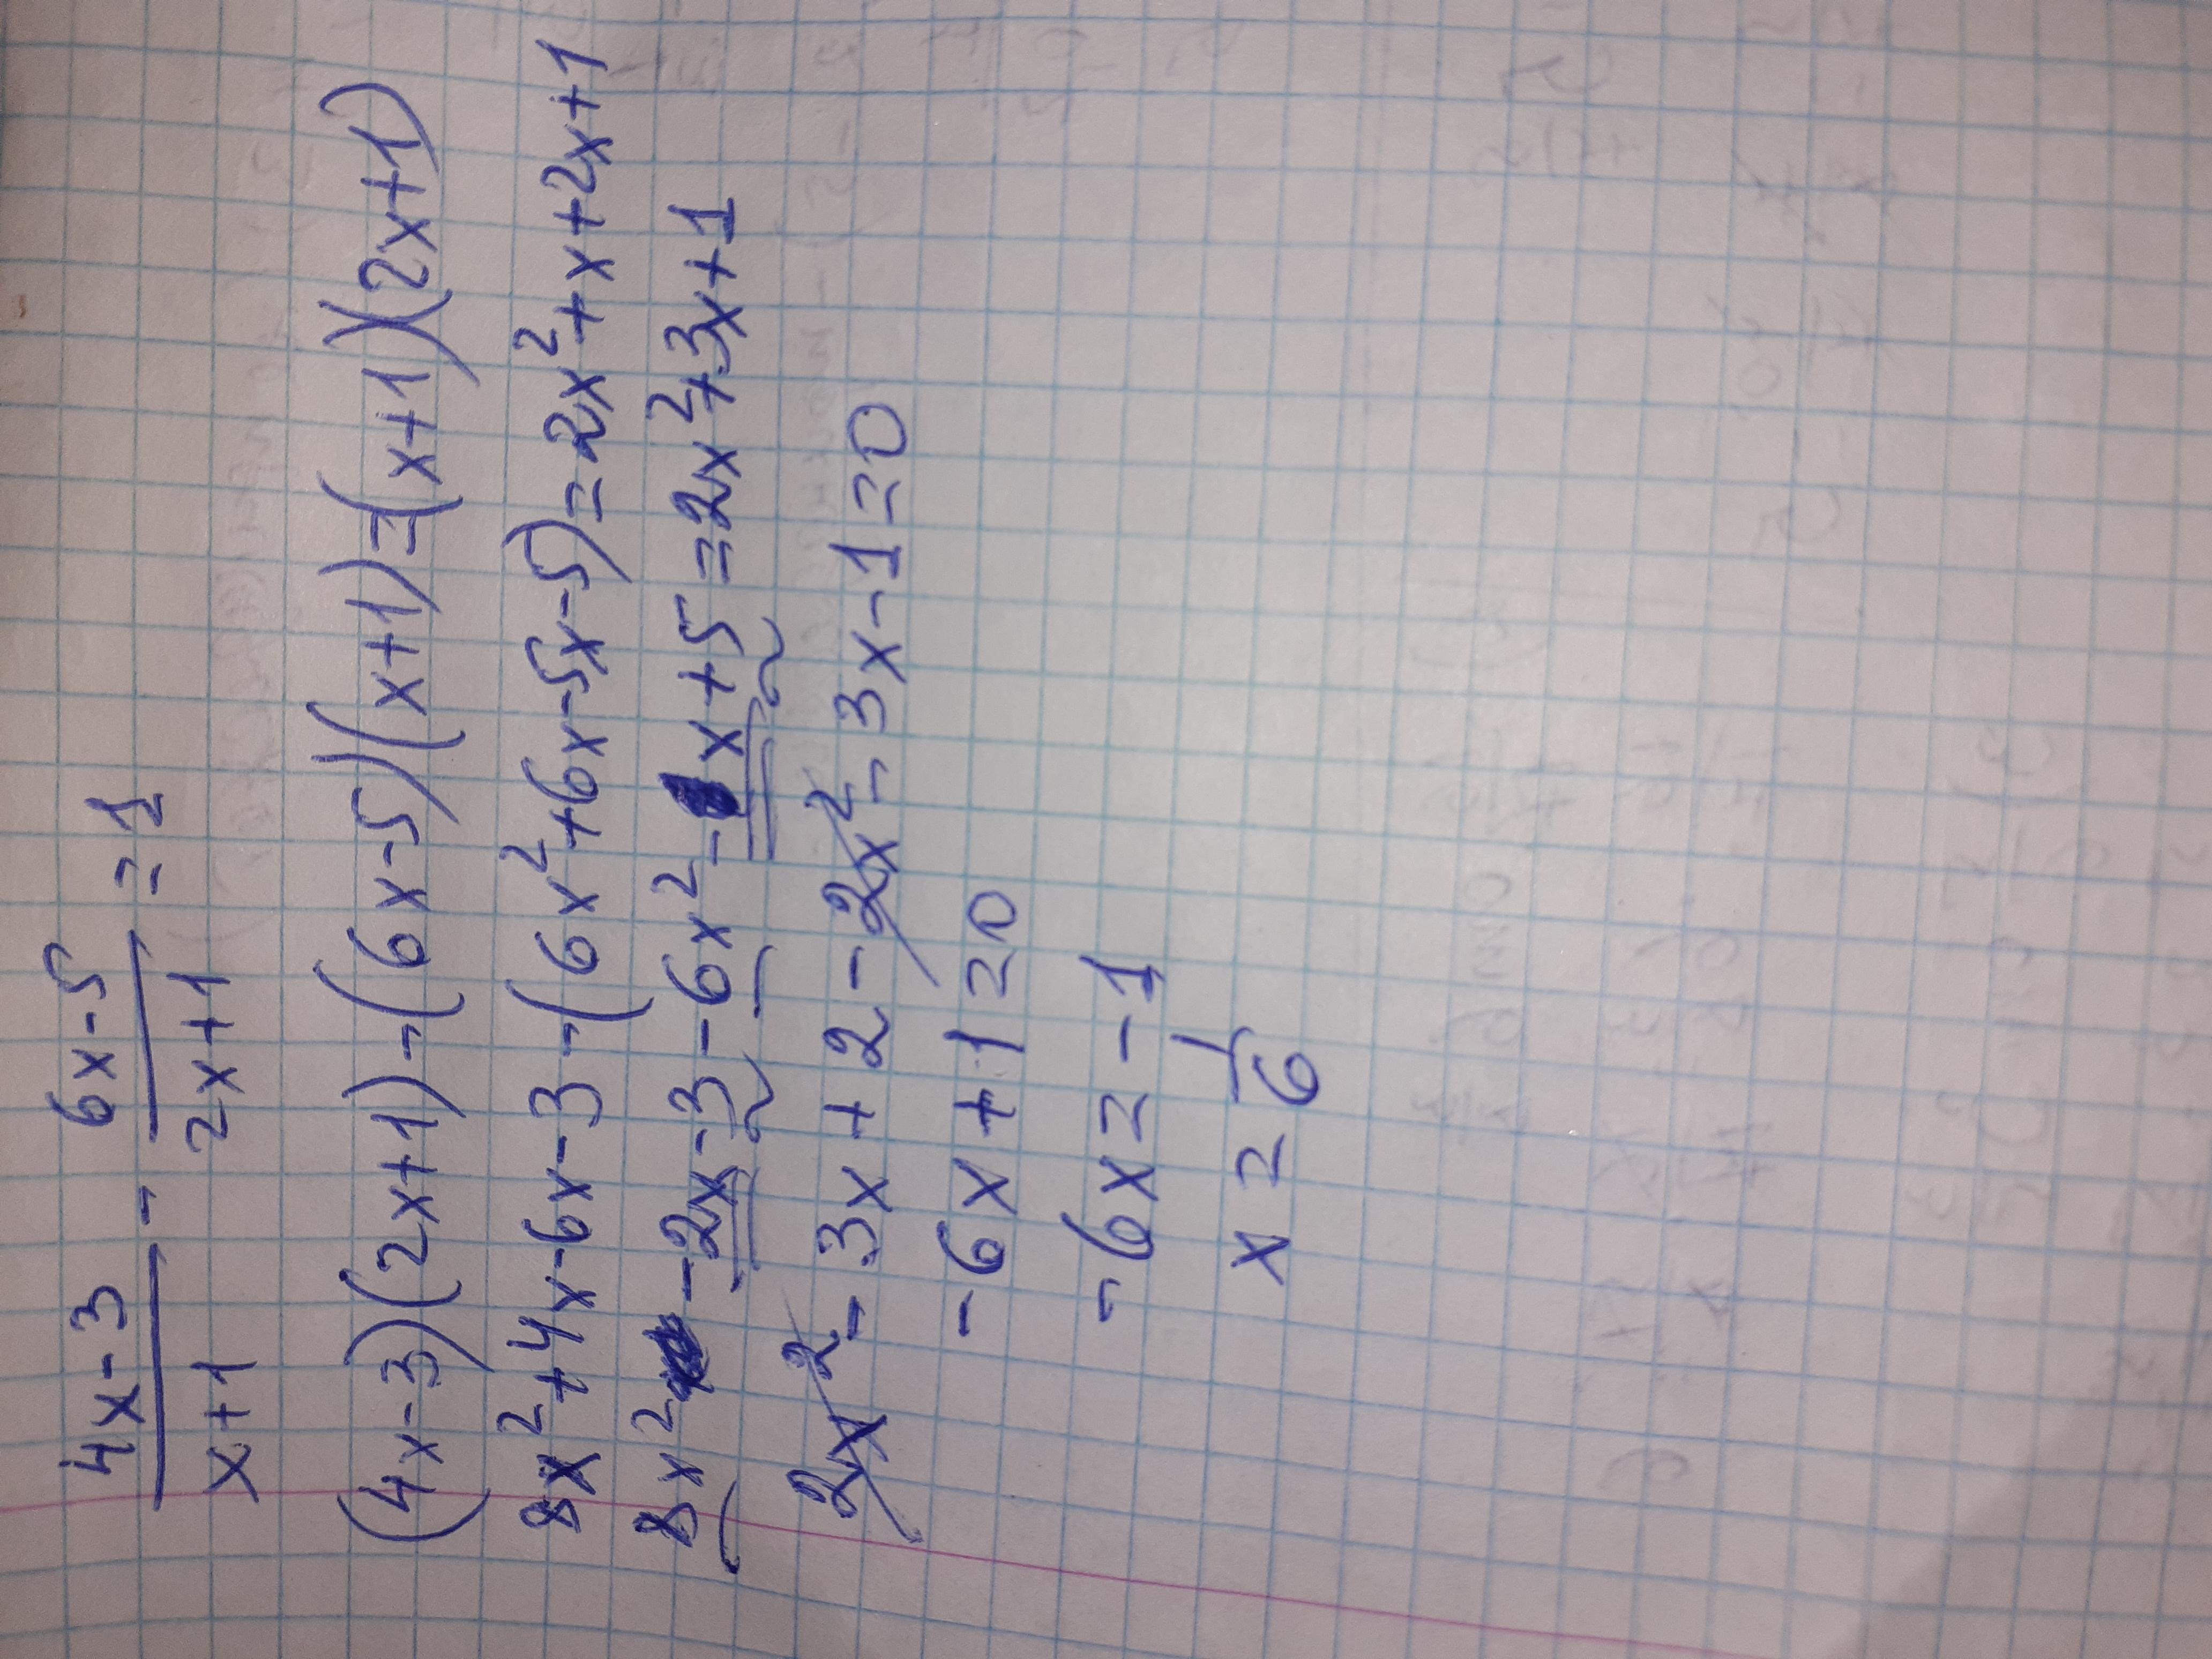 4x-3/x+1 - 6x-5/2x+1 = 1
(4x-3)(2x+1)-(6x-5)(x+1)=(x+1)(2x+1)
8x²+4x-6x-3-(6x²+6x-5x-5)=2x²+x+2x+1
8x²-2x-3-6x²-x+5=2x²+3x+1
2x²-3x+2-2x²-3x-1=0
-6x+1=0
-6x=-1
x=1/6